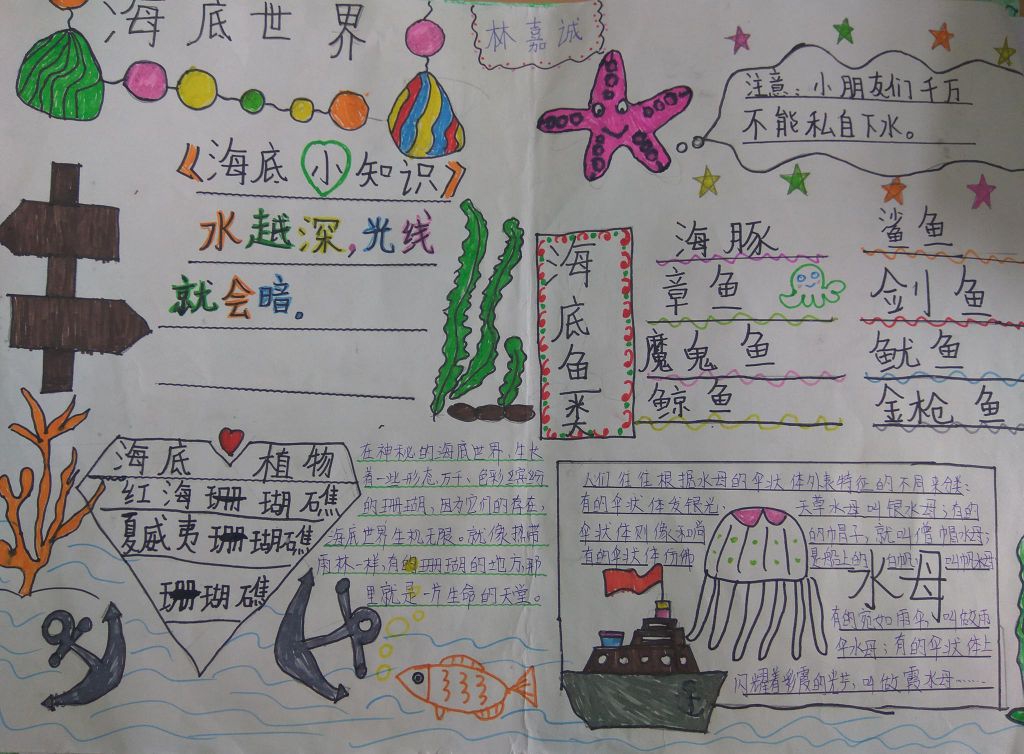 海底世界
林嘉诚
注意：小朋友们千万
不能私自下水。
《海底小知识》
水越深，光线
就会暗。
海底鱼类
海豚
鲨鱼
章鱼
剑鱼
魔鬼鱼
鱿鱼
鲸鱼
金枪鱼
海底植物
红海珊瑚礁
夏威夷珊瑚礁
珊瑚礁
在神秘的海底世界，生长
着一些形态万千、色彩缤纷
的珊瑚，因为它们的存在，
海底世界生机无限。就像热带
雨林一样，有的珊瑚的地方，那
里就是一片生命的天堂。
人们往往根据水母的伞状体外表特征的不同来分类：
有的伞状体发银光，天草水母叫银水母；有的
伞状体则像和尚的巾帽子，就叫僧帽水母；
有的伞状体仿佛是船上的白帆，叫帆水母
水母
有的宛如雨伞，叫做雨
伞水母；有的伞状体上
闪耀着彩霞的光芒，叫做霞水母……